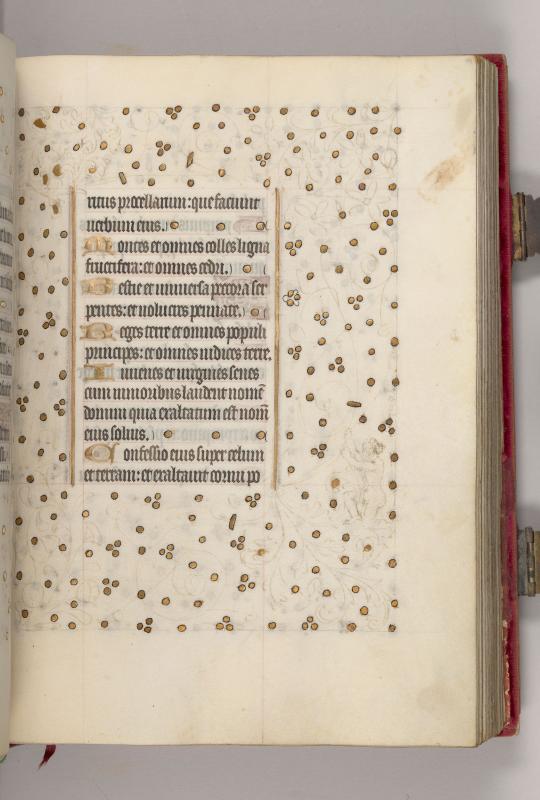 ritus procellarum: que faciunt
uerbum eius.
Montes et omnes colles ligna
fructifera: et omnes cedri.
Bestie et uniuersa pecora ser
pentes: et uolucres pennate.
Reges terre et omnes populi
principes: et omnes iudices terre.
Iuuenes et uirgines senes
cum iunioribus laudent nomē
domini quia exaltatum est nomē
eius solius.
Confessio eius super celum
et terram: et exaltauit cornu po